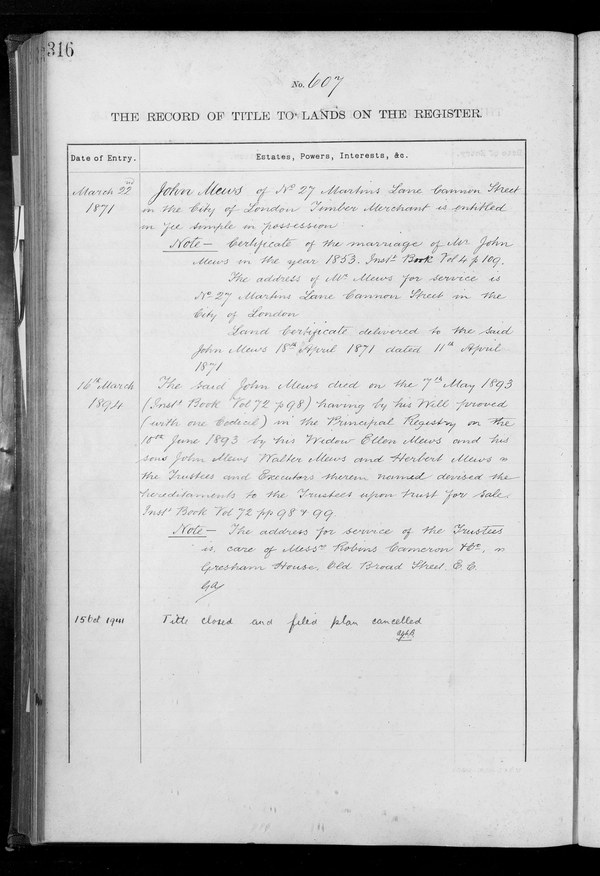 316
No. 607
THE RECORD OF TITLE TO LANDS ON THE REGISTER.
Date of Entry.
Estates, Powers, Interests, &c.
March 22nd
1871
John Mews of No 27 Martins Lane Cannon Street
in the City of London Timber Merchant is entitled
in fee simple in possession
Note — Certificate of the marriage of Mr John
Mews in the year 1853. Inst. Book Vol 4 p 109.
The address of Mr Mews for service is
No 27 Martins Lane Cannon Street in the
City of London
Land Certificate delivered to the said
John Mews 18th April 1871 dated 11th April
1871
16th March
1894
The said John Mews died on the 7th May 1893
(Inst. Book Vol 72 p 98) having by his Will proved
(with one Codicil) in the Principal Registry on the
10th June 1893 by his Widow Ellen Mews and his
sons John Mews Walter Mews and Herbert Mews
the Trustees and Executors therein named devised the
hereditaments to the Trustees upon trust for sale.
Inst. Book Vol 72 pp 98 & 99
Note — The address for service of the Trustees
is, care of Messrs Robins Cameron & Co.
Gresham House, Old Broad Street E.C.
15 Oct 1941
Title closed and filed plan cancelled